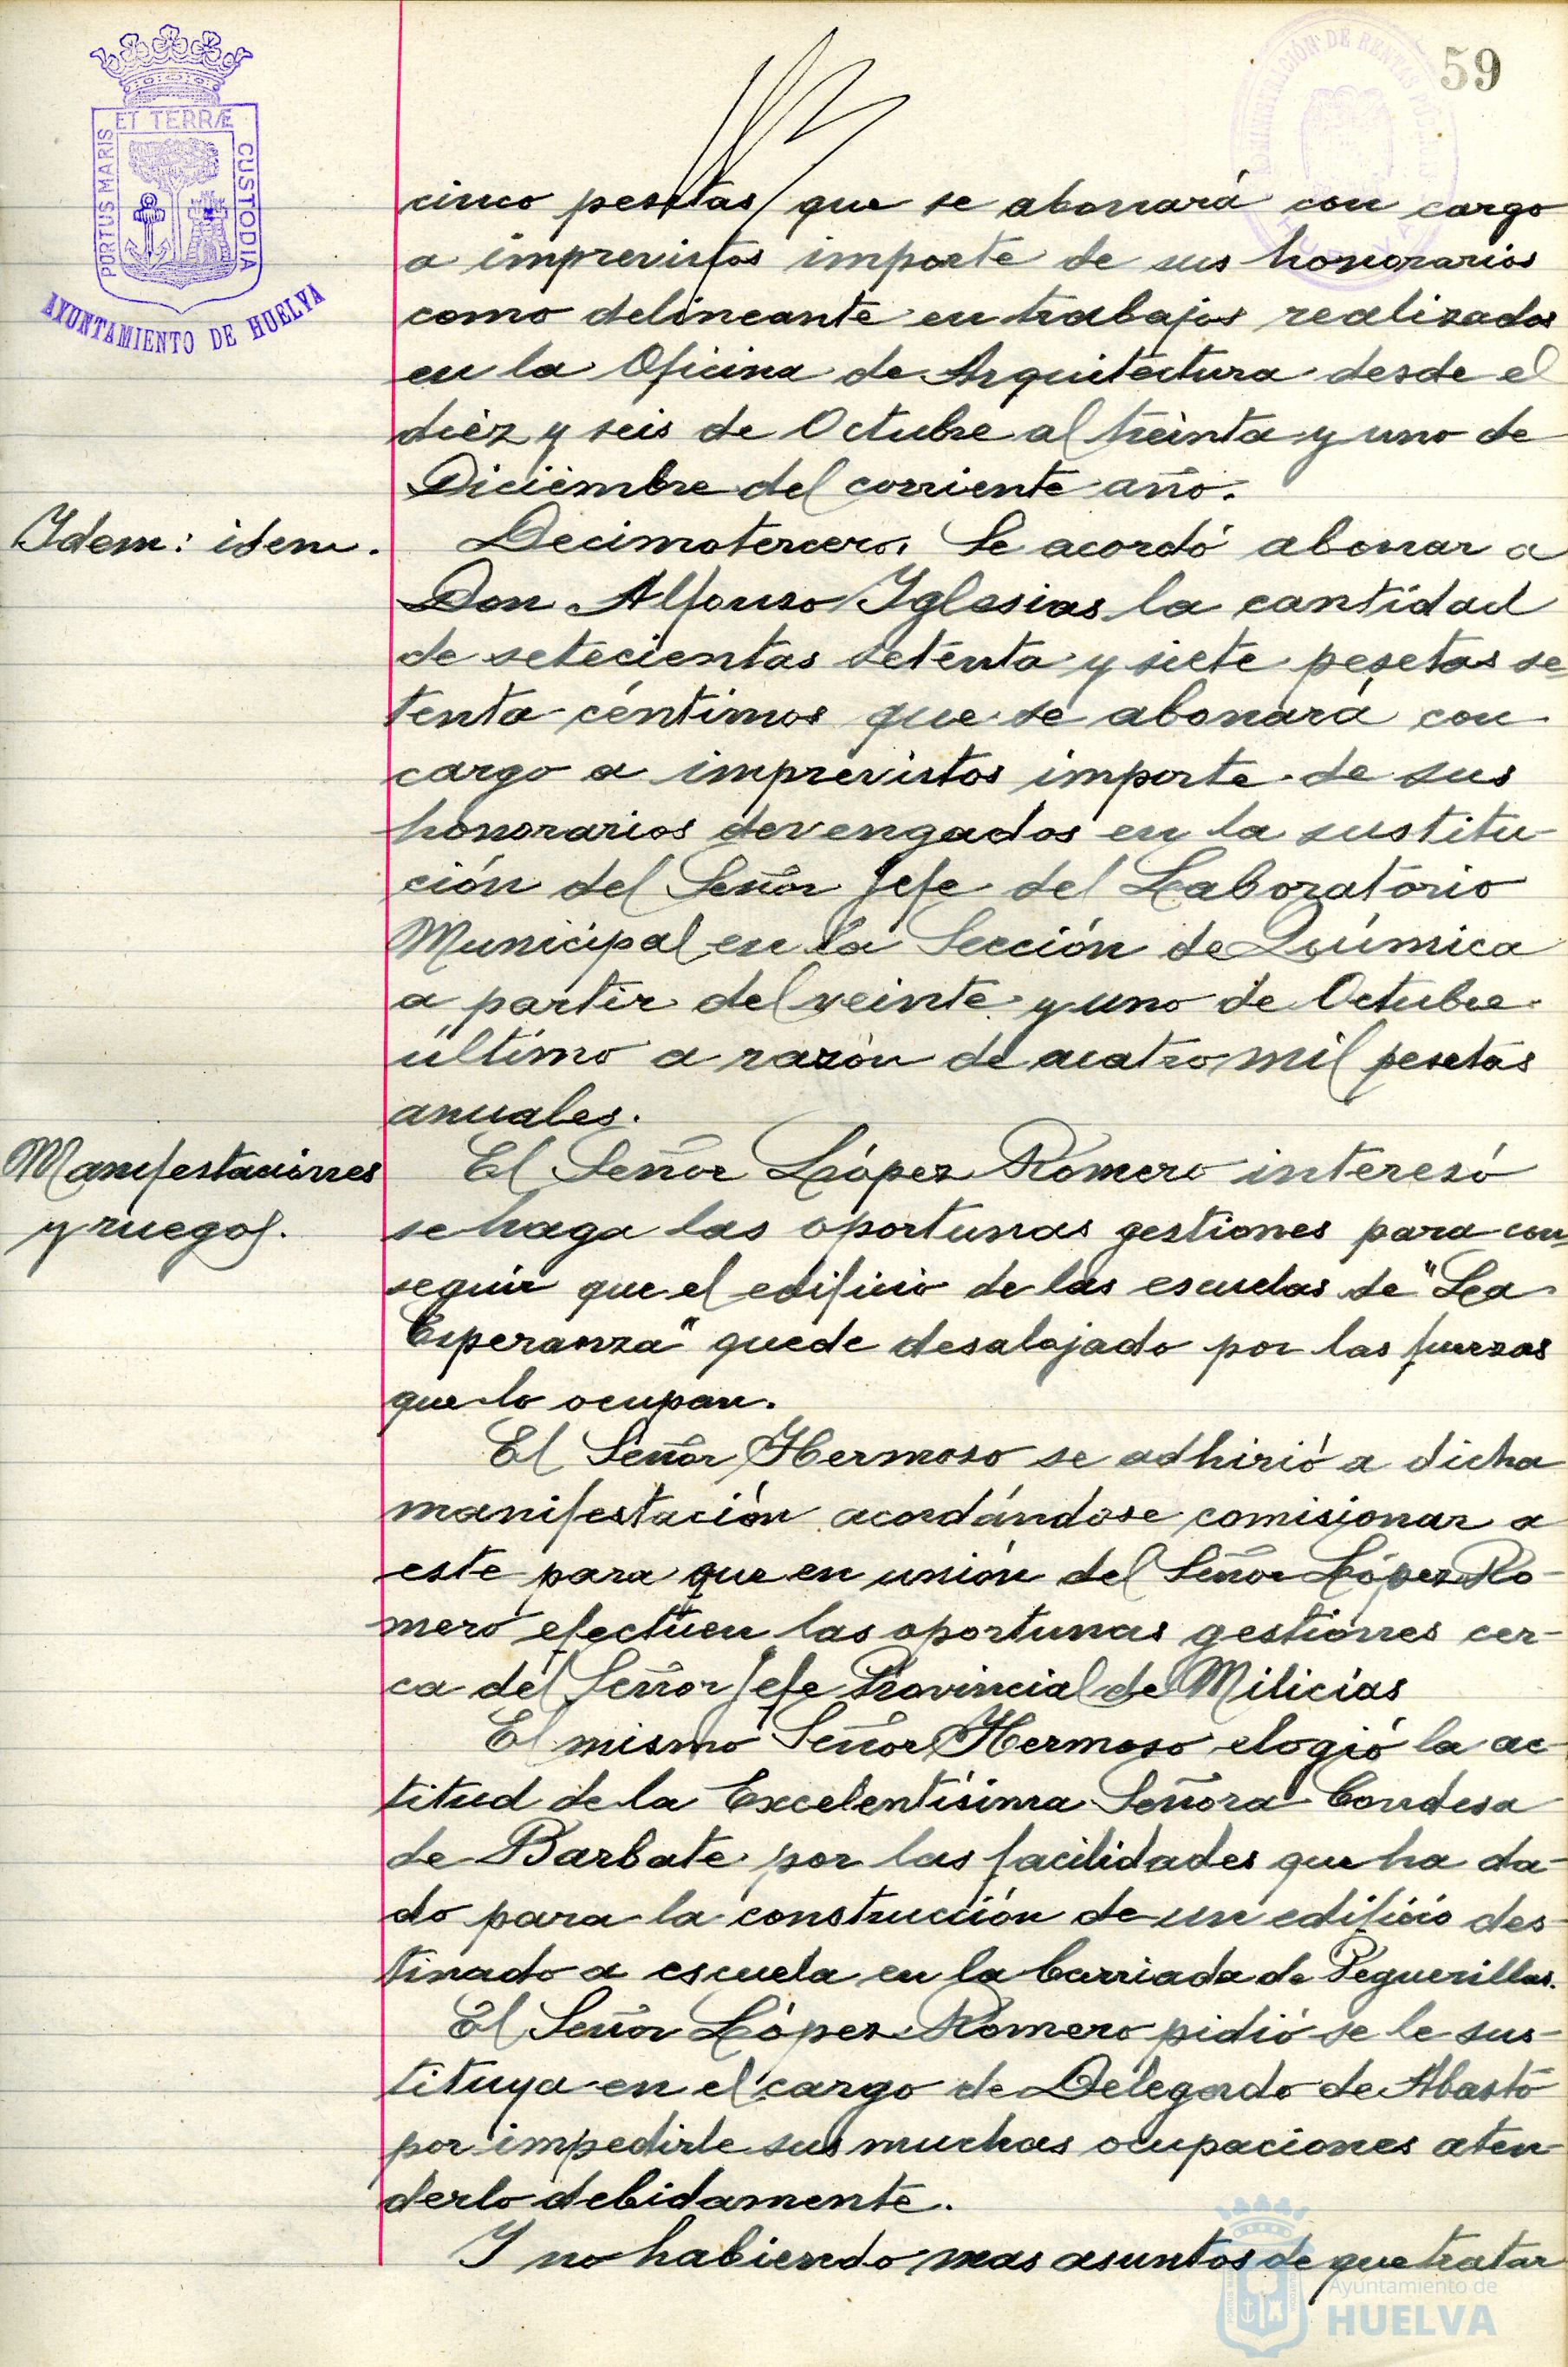 59
ET TERRÆ
PORTUS MARIS
CUSTODIA
AYUNTAMIENTO DE HUELVA
cinco pesetas que se abonará con cargo
a imprevistos importe de sus honorarios
como delineante en trabajos realizados
en la Oficina de Arquitectura desde el
diéz y seis de Octubre al treinta y uno de
Diciembre del corriente año.
Idem: idem.
Decimotercero. Se acordó abonar a
Don Alfonso Iglesias la cantidad
de setecientas setenta y siete pesetas se
tenta céntimos que se abonará con
cargo a imprevistos importe de sus
honorarios devengados en la sustitu-
ción del Señor Jefe del Laboratorio
Municipal en la Sección de Química
a partir del veinte y uno de Octubre
último a razón de cuatro mil pesetas
anuales.
Manifestaciones
y ruegos.
El Señor López Romero interesó
se haga las oportunas gestiones para con-
seguir que el edificio de las escuelas de "La
Esperanza" quede desalojado por las fuerzas
que lo ocupan.
El Señor Hermoso se adhirió a dicha
manifestación acordándose comisionar a
este para que en unión del Señor López Ro-
mero efectúen las oportunas gestiones cer-
ca del Señor Jefe Provincial de Milicias
El mismo Señor Hermoso elogió la ac-
titud de la Excelentísima Señora Condesa
de Barbate por las facilidades que ha da-
do para la construcción de un edificio des-
tinado a escuela en la barriada de Peguerillas.
El Señor López Romero pidió se le sus-
tituya en el cargo de Delegado de Abasto
por impedirle sus muchas ocupaciones aten-
derlo debidamente.
Y no habiendo mas asuntos de que tratar
Ayuntamiento de
HUELVA